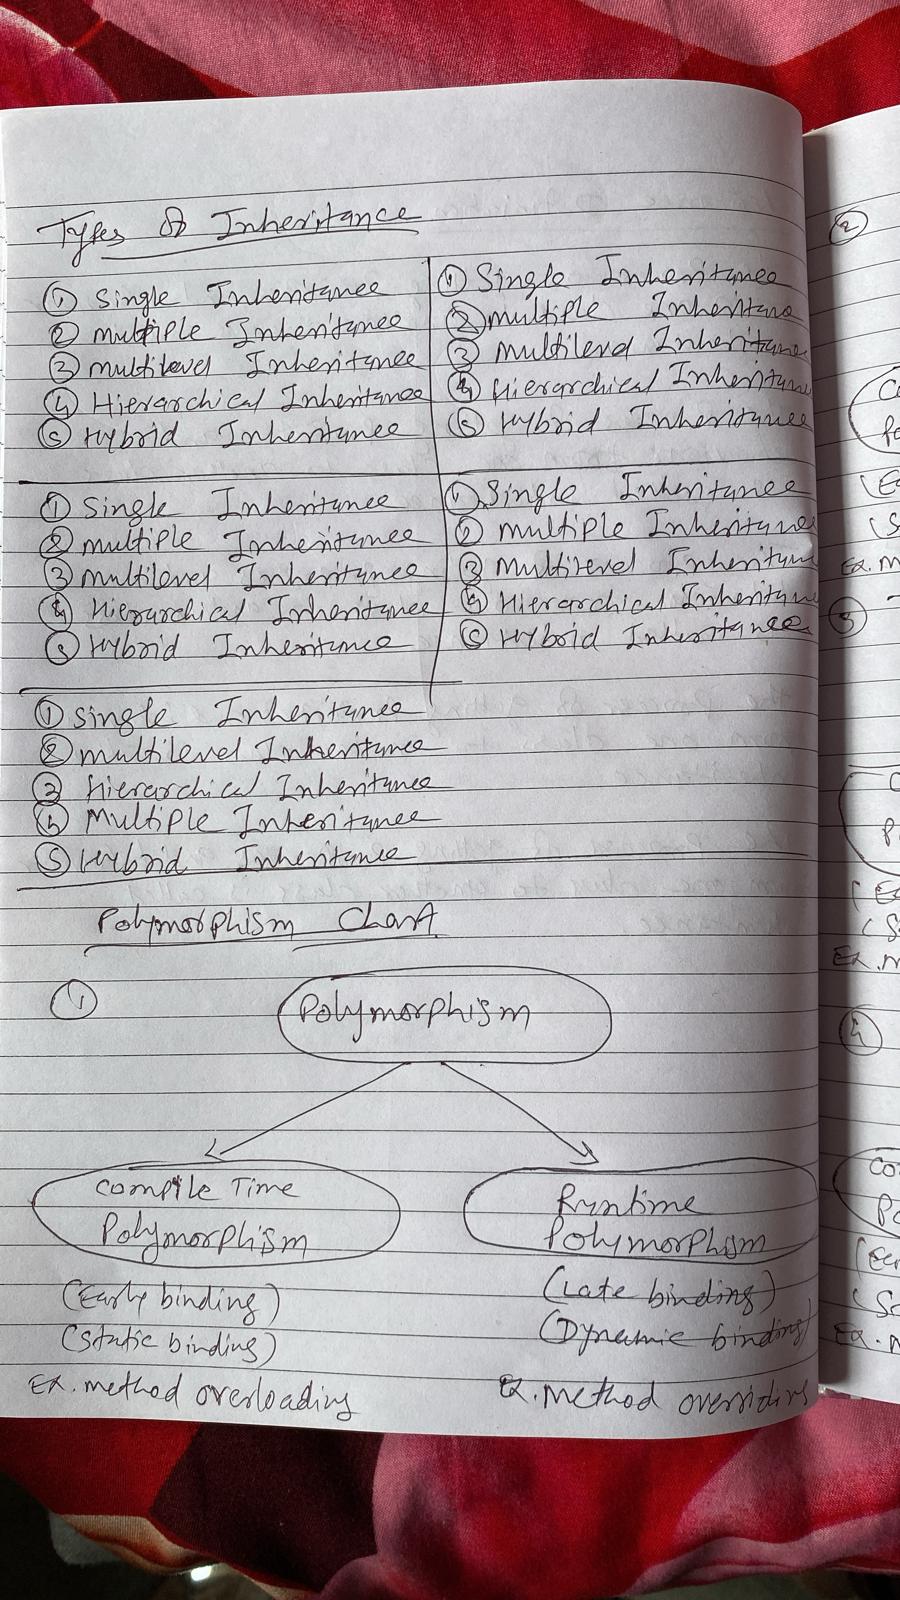 Types of Inheritance
① Single Inheritance
② multiple Inheritance
③ multilevel Inheritance
④ Hierarchical Inheritance
⑤ Hybrid Inheritance
① Single Inheritance
② multiple Inheritance
③ multilevel Inheritance
④ Hierarchical Inheritance
⑤ Hybrid Inheritance
① Single Inheritance
② multiple Inheritance
③ multilevel Inheritance
④ Hierarchical Inheritance
⑤ Hybrid Inheritance
① Single Inheritance
② multiple Inheritance
③ multilevel Inheritance
④ Hierarchical Inheritance
⑤ Hybrid Inheritance
① Single Inheritance
② multilevel Inheritance
③ Hierarchical Inheritance
④ Multiple Inheritance
⑤ Hybrid Inheritance
Polymorphism Chart
①
Polymorphism
Compile Time
Polymorphism
(Early binding)
(Static binding)
Ex. method overloading
Runtime
Polymorphism
(Late binding)
(Dynamic binding)
Ex. method overriding
②
③
④